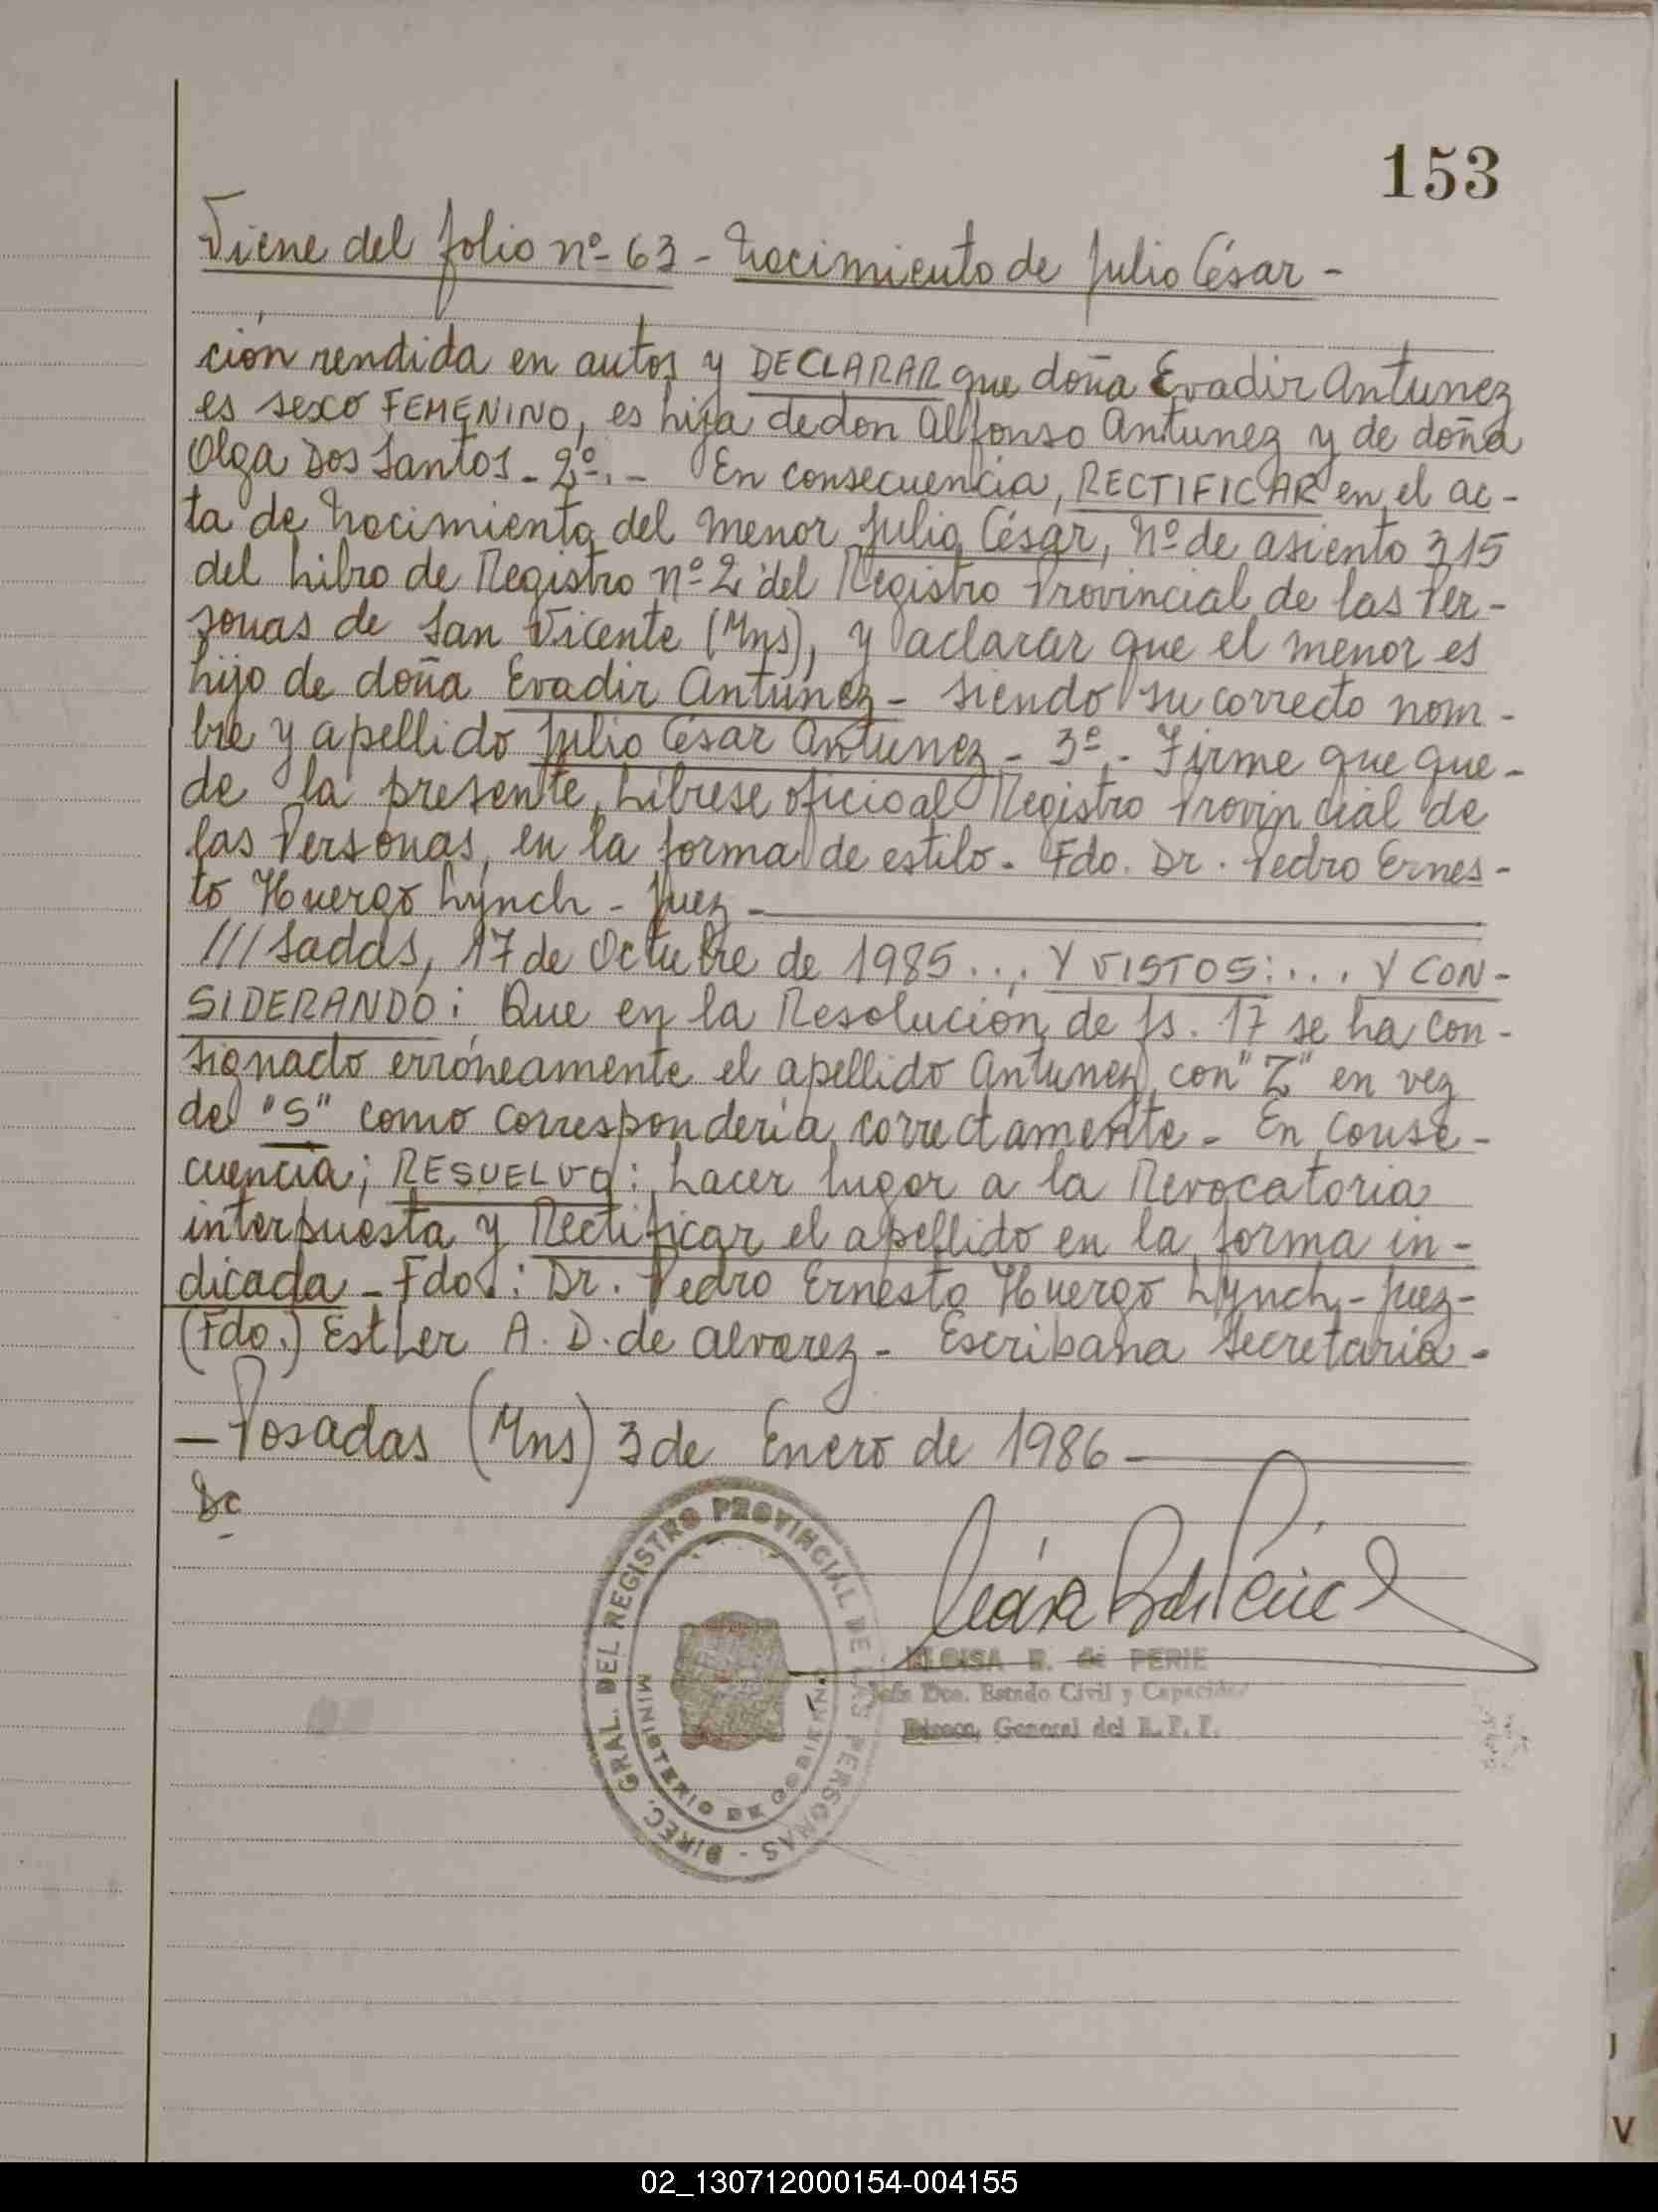 153
Viene del folio nº 63 - Nacimiento de Julio César -
ción rendida en autos y DECLARAR que doña Evadir Antunez
es sexo FEMENINO, es hija de don Alfonso Antunez y de doña
Olga Dos Santos - 2º. - En consecuencia, RECTIFICAR en el ac-
ta de Nacimiento del menor Julio César, Nº de asiento 315
del Libro de Registro nº 2 del Registro Provincial de las Per-
sonas de San Vicente (Mns), y aclarar que el menor es
hijo de doña Evadir Antunez - siendo su correcto nom-
bre y apellido Julio César Antunez - 3º. - Firme que que-
de la presente, Líbrese oficio al Registro Provincial de
las Personas, en la forma de estilo - Fdo. Dr. Pedro Ernes-
to Huergo Lynch - Juez -
///sadas, 17 de Octubre de 1985 ..., Y VISTOS: ... Y CON-
SIDERANDO: Que en la Resolución de fs. 17 se ha con-
signado erróneamente el apellido Antunez, con "Z" en vez
de "S" como correspondería correctamente - En conse-
cuencia; RESUELVO: hacer lugar a la Revocatoria
interpuesta y Rectificar el apellido en la forma in-
dicada - Fdo.: Dr. Pedro Ernesto Huergo Lynch - Juez -
(Fdo.) Esther A. D. de Alvarez - Escribana Secretaria -
- Posadas (Mns) 3 de Enero de 1986 -
DIREC. GRAL. DEL REGISTRO PROVINCIAL DE LAS PERSONAS -
MINISTERIO DE GOBIERNO
ELOISA R. de PERIE
Jefa Dto. Estado Civil y Capacidad
Direcc. General del R. P. P.
V
02_130712000154-004155